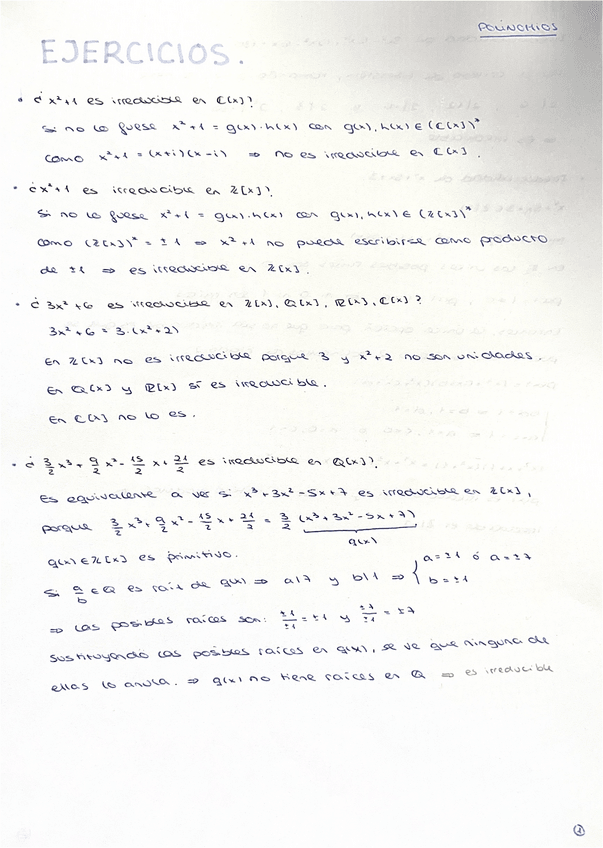 POLINOMIOS
EJERCICIOS.
• ¿ x²+1 es irreducible en ℂ[x]?
Si no lo fuese x²+1 = g(x)·h(x) con g(x), h(x) ∈ (ℂ[x])*
como x²+1 = (x+i)(x-i) ⇒ no es irreducible en ℂ[x].
• ¿ x²+1 es irreducible en ℤ[x]?
Si no lo fuese x²+1 = g(x)·h(x) con g(x), h(x) ∈ (ℤ[x])*
como (ℤ[x])* = ±1 ⇒ x²+1 no puede escribirse como producto
de ±1 ⇒ es irreducible en ℤ[x].
• ¿ 3x²+6 es irreducible en ℤ[x], ℚ[x], ℝ[x], ℂ[x]?
3x²+6 = 3·(x²+2)
En ℤ[x] no es irreducible porque 3 y x²+2 no son unidades.
En ℚ[x] y ℝ[x] sí es irreducible.
En ℂ[x] no lo es.
• ¿ 3/2 x³ + 9/2 x² - 15/2 x + 21/2 es irreducible en ℚ[x]?
Es equivalente a ver si x³+3x²-5x+7 es irreducible en ℤ[x],
porque 3/2 x³ + 9/2 x² - 15/2 x + 21/2 = 3/2 (x³+3x²-5x+7)
q(x)
q(x) ∈ ℤ[x] es primitivo.
Si a/b ∈ ℚ es raíz de q(x) ⇒ a|7 y b|1 ⇒ { a=±1 ó a=±7
b=±1
⇒ Las posibles raíces son: ±1/±1 = ±1 y ±7/±1 = ±7
Sustituyendo las posibles raíces en q(x), se ve que ninguna de
ellas lo anula. ⇒ q(x) no tiene raíces en ℚ ⇒ es irreducible
1